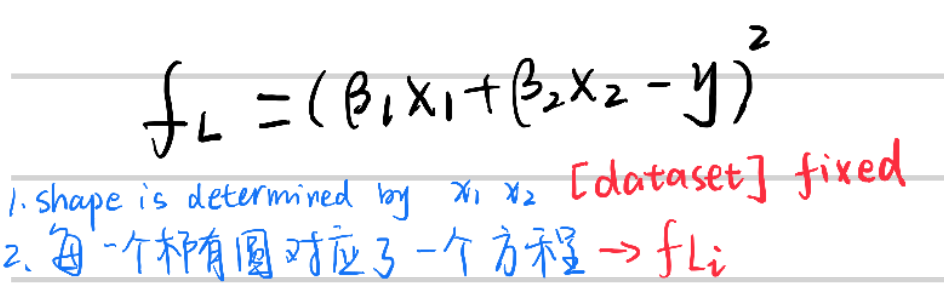 f_L = (β₁x₁ + β₂x₂ - y)²
1. shape is determined by x₁ x₂ [dataset] fixed
2. 每一个椭圆对应了一个方程 → f_Li